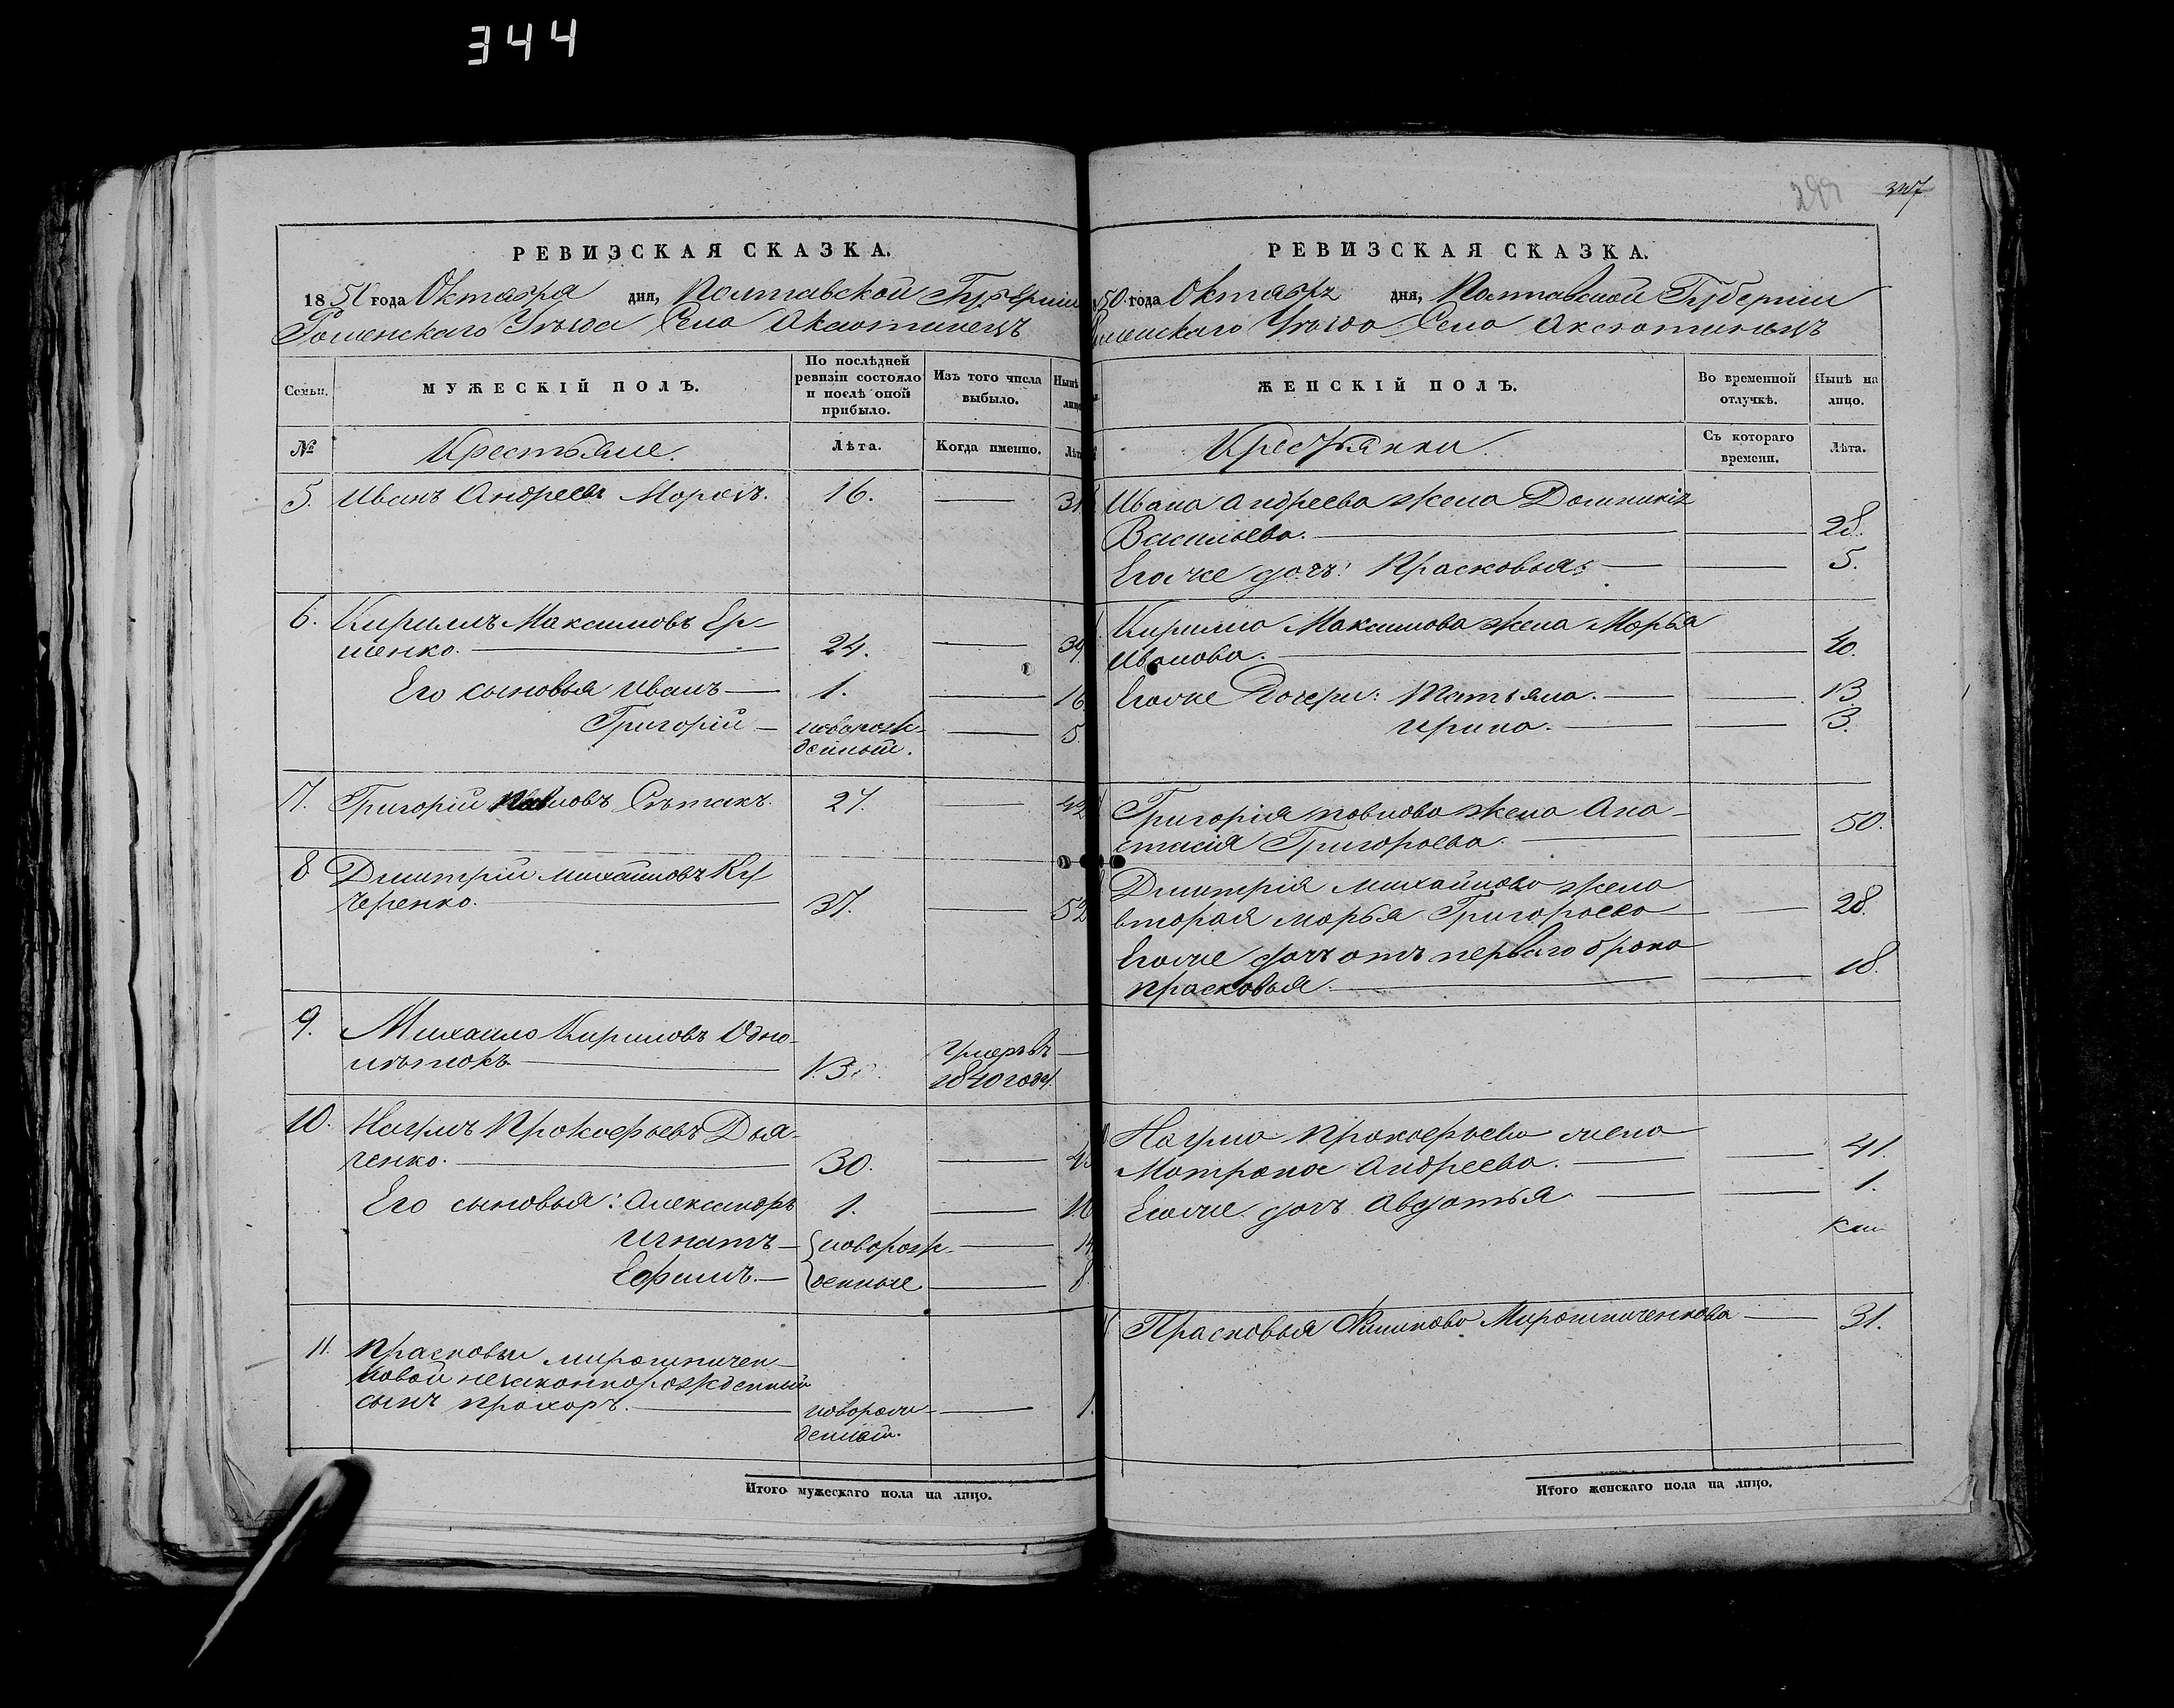 344
299 347
РЕВИЗСКАЯ СКАЗКА.
1850 года Октября дня, Полтавской Губерніи
Роменскаго Уѣзда Села Аксютинецъ
Семьи. МУЖЕСКІЙ ПОЛЪ. По послѣдней ревизіи состояло и послѣ оной прибыло. Изъ того числа выбыло. Нынѣ лицо
№ Крестьяне. Лѣта. Когда именно. Лѣт
5. Иванъ Андреевъ Морозъ. 16. — 31
6. Кирилъ Максимовъ Ер-
шенко. — 24. — 39
Его сыновья Иванъ — 1. — 16
Григорій — новорож-
денный. — 5
7. Григорій Павловъ Сѣтакъ. 27. — 42
8 Дмитрій Михайловъ Ку
черенко. — 37. — 52
9. Михаило Кириловъ Одно-
лѣтокъ — 13 Умеръ въ —
1840 году.
10. Наумъ Прокофьевъ Дья-
ченко. — 30. — 45
Его сыновья: Александръ 1. — 16
Игнатъ — новорож- — 14
Ефимъ. — денные — 8
11. Прасковьи Мирошничен-
ковой незаконнорожденный
сынъ Прохоръ. — новорож- — 1.
денный.
Итого мужескаго пола на лицо.
РЕВИЗСКАЯ СКАЗКА.
50 года Октября дня, Полтавской Губерніи
менскаго Уѣзда Села Аксютинецъ
ЖЕНСКІЙ ПОЛЪ. Во временной отлучкѣ. Нынѣ на лицо.
Крестьянки. Съ котораго времени. Лѣта.
Ивана Андреева жена Домникія
Васильева. — — 28.
Его же дочь: Прасковья — — 5.
Кирила Максимова жена Марья
Иванова. — — 40.
Его же дочери: Татьяна. — — 13.
Ирина. — — 3.
Григорія Павлова жена Ана-
стасія Григорьева. — — 50.
Дмитрія Михайлова жена
вторая Марья Григорьева — — 28.
Его же дочь отъ перваго брака
Прасковья. — — 18.
Наума Прокофьева жена
Матрона Андреева. — — 41.
Его же дочь Авдотья — — 1.
Прасковья Мирошниченкова — 31.
Итого женскаго пола на лицо.